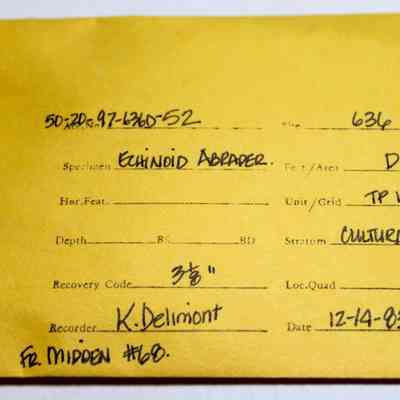 50-20-97-636D-52 Site 636
Specimen ECHINOID ABRADER. Feat/Area D
Hor.Feat. Unit/Grid TP
Depth BS BD Stratum CULTURA
Recovery Code 3 1/8" Loc.Quad
Recorder K. Delimont Date 12-14-83
FR. MIDDEN #68.